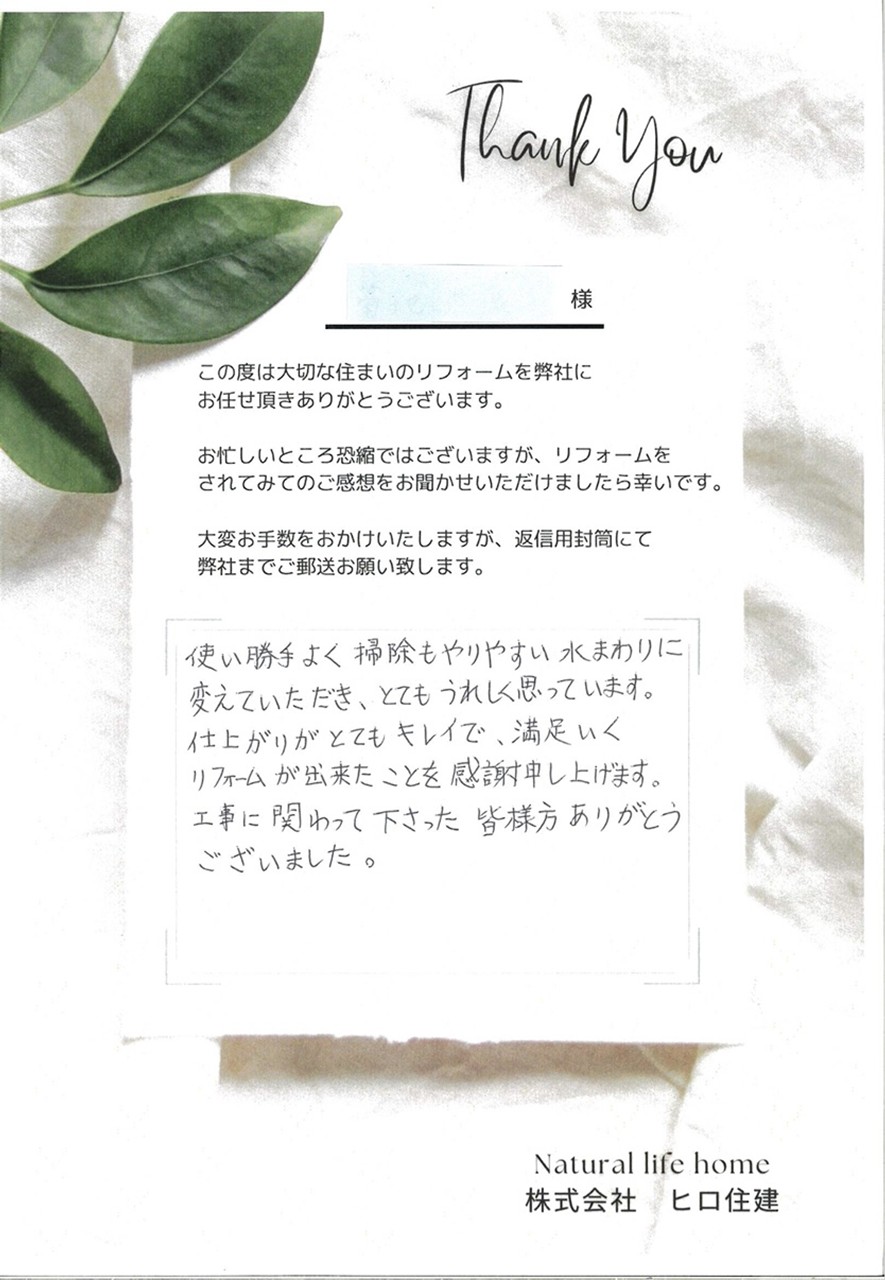 Thank You
様
この度は大切な住まいのリフォームを弊社に
お任せ頂きありがとうございます。
お忙しいところ恐縮ではございますが、リフォームを
されてみてのご感想をお聞かせいただけましたら幸いです。
大変お手数をおかけいたしますが、返信用封筒にて
弊社までご郵送お願い致します。
使い勝手よく 掃除もやりやすい 水まわりに
変えていただき、とても うれしく思っています。
仕上がりが とても キレイで、満足 いく
リフォーム が出来た ことを 感謝申し上げます。
工事に 関わって 下さった 皆様方 ありがとう
ございました。
Natural life home
株式会社 ヒロ住建